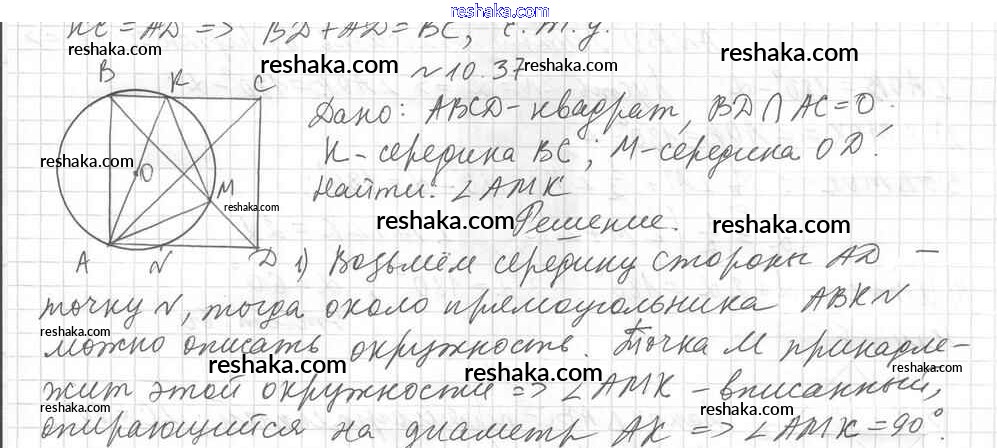 reshaka.com
KC = AD => BD + AD = BC, ч.т.д.
reshaka.com
reshaka.com
reshaka.com
~ 10.37 reshaka.com
B K C
Дано: ABCD - квадрат, BD ∩ AC = O.
reshaka.com
K - середина BC; M - середина OD.
O
M
Найти: ∠AMK
reshaka.com
reshaka.com
Решение.
reshaka.com
A N D
1) Возьмём середину стороны AD -
точку N, тогда около прямоугольника ABKN
reshaka.com
можно описать окружность. Точка M принадле-
reshaka.com
reshaka.com
жит этой окружности => ∠AMK - вписанный,
reshaka.com
reshaka.com
опирающийся на диаметр AK => ∠AMK = 90°.